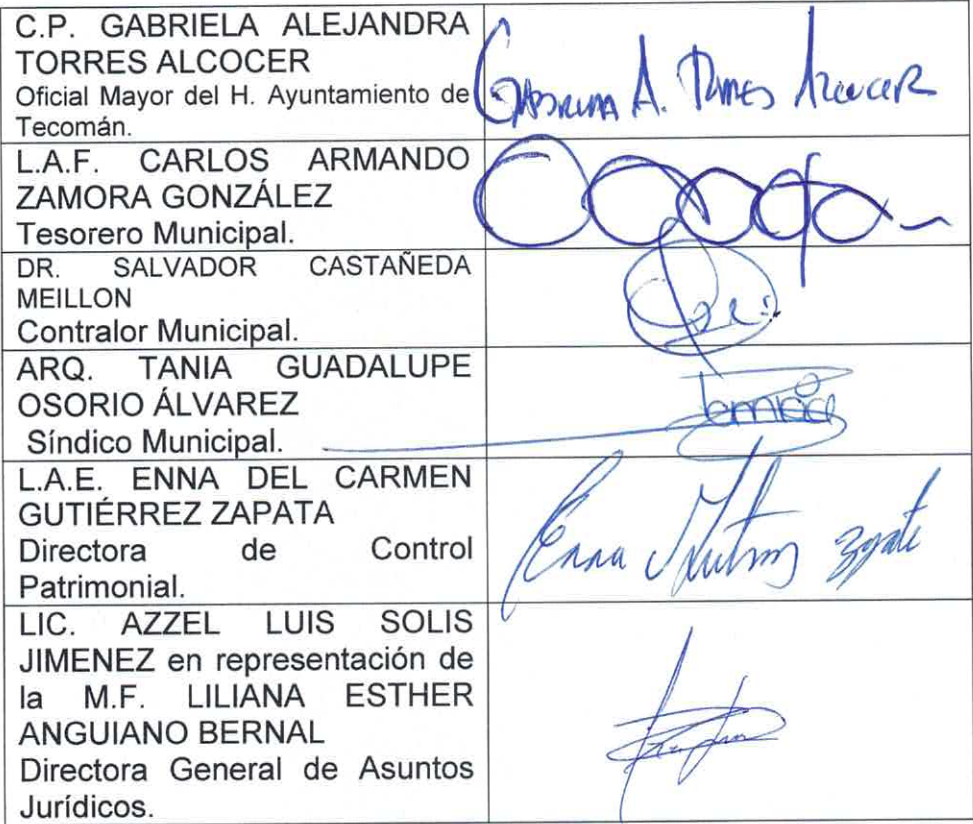 C.P. GABRIELA ALEJANDRA
TORRES ALCOCER
Oficial Mayor del H. Ayuntamiento de
Tecomán.
Gabriela A. Torres Alcocer
L.A.F. CARLOS ARMANDO
ZAMORA GONZÁLEZ
Tesorero Municipal.
DR. SALVADOR CASTAÑEDA
MEILLON
Contralor Municipal.
ARQ. TANIA GUADALUPE
OSORIO ÁLVAREZ
Síndico Municipal.
Tania
L.A.E. ENNA DEL CARMEN
GUTIÉRREZ ZAPATA
Directora de Control
Patrimonial.
Enna Gutierrez Zapata
LIC. AZZEL LUIS SOLIS
JIMENEZ en representación de
la M.F. LILIANA ESTHER
ANGUIANO BERNAL
Directora General de Asuntos
Jurídicos.